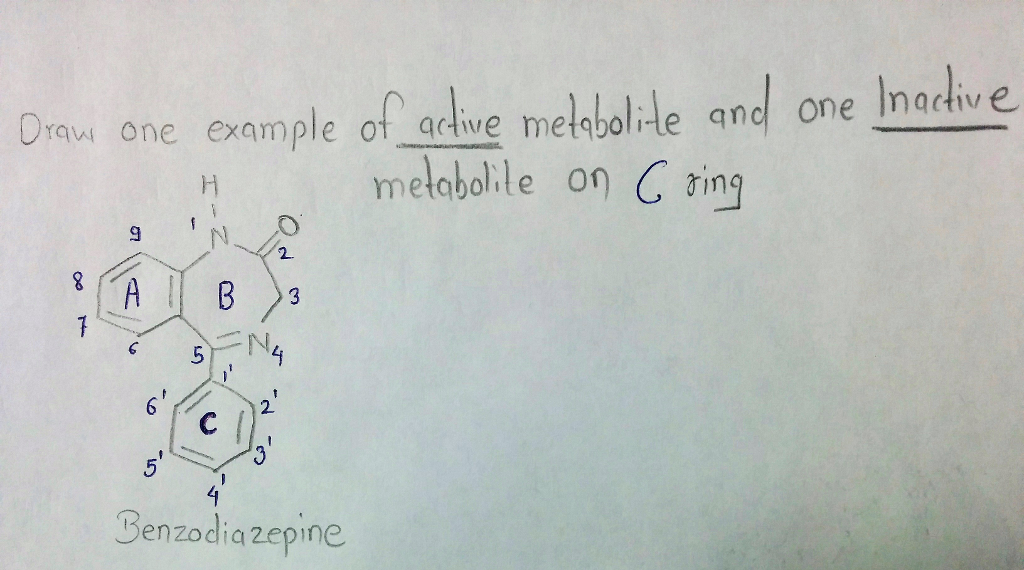 Draw one example of active metabolite and one Inactive
metabolite on C ring
H
9 1 N O
8 A B 2
7 3
6 5 N 4
1'
6' C 2'
5' 3'
4'
Benzodiazepine